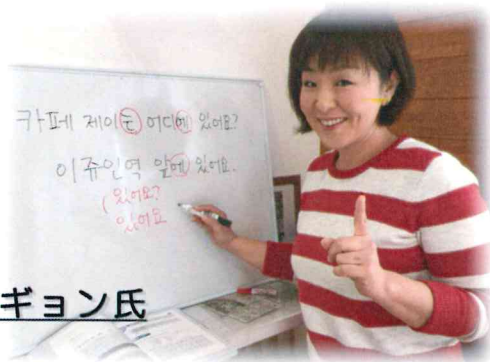 카페 제이는 어디에 있어요?
이쥬인역 앞에 있어요.
( 있어요?
있어요
ギョン氏